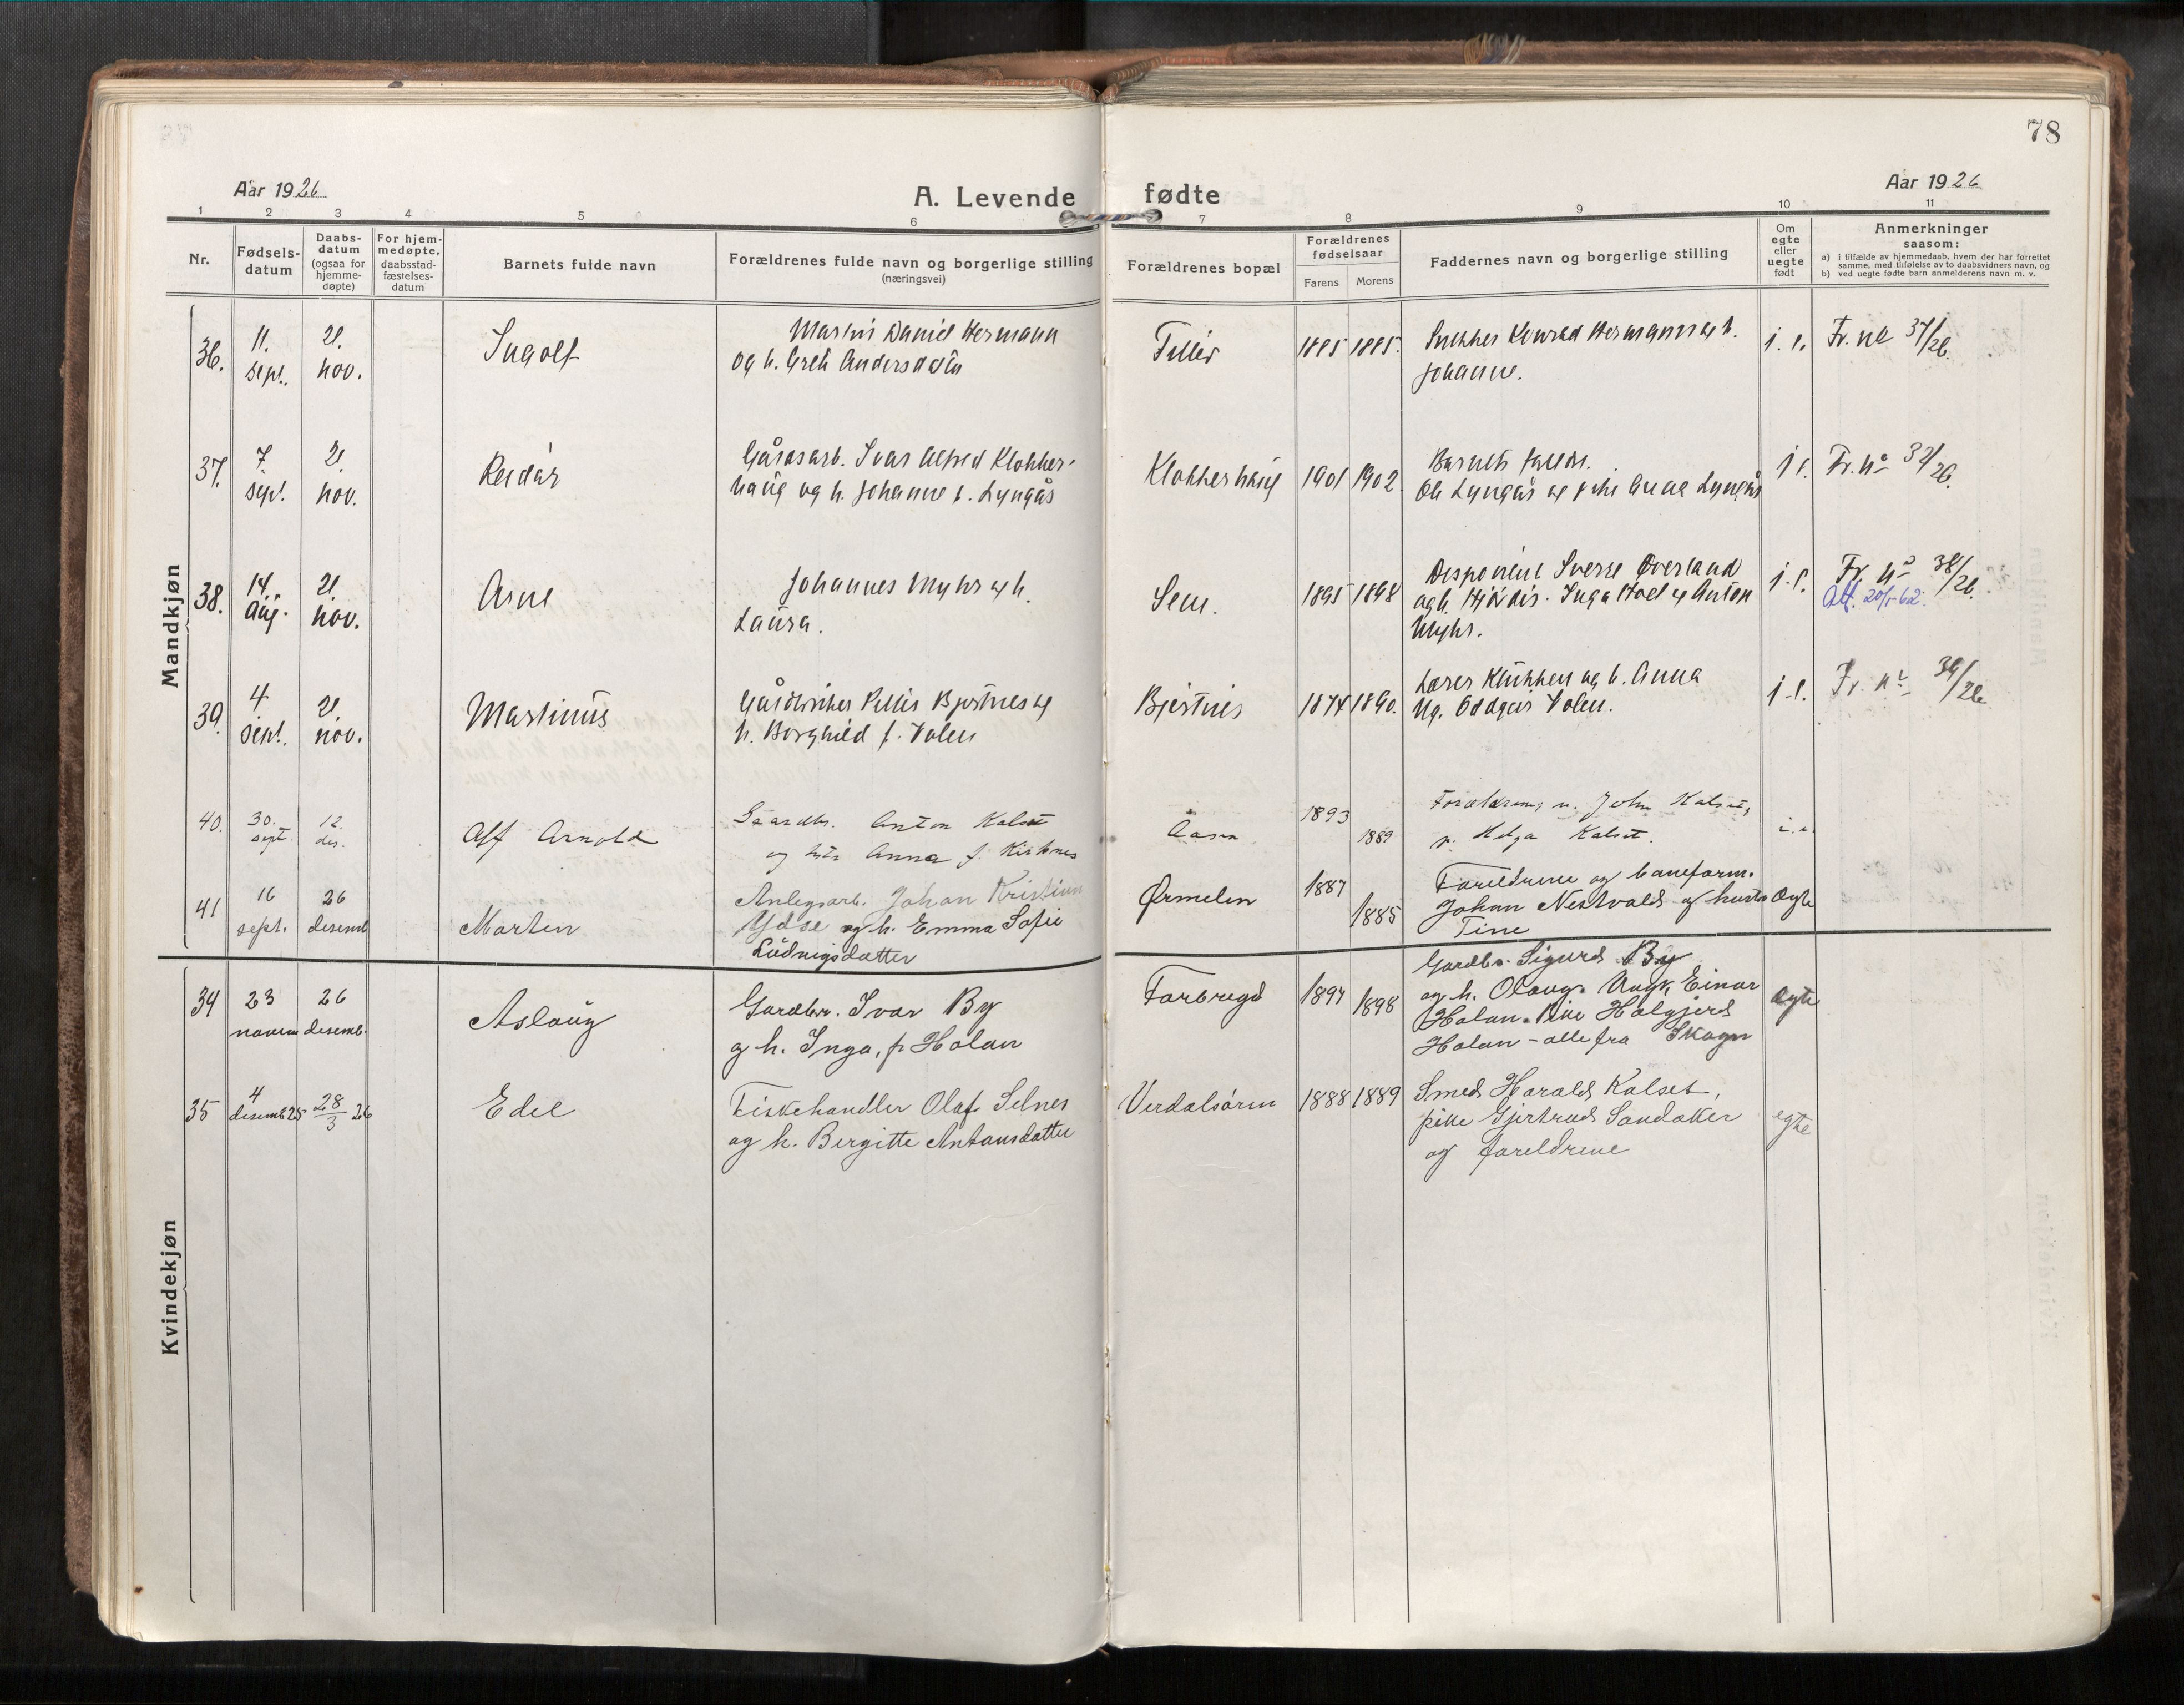 78
Aar 1926
A. Levende fødte
Aar 1926
1 2 3 4 5 6 7 8 9 10 11
Nr.
Fødsels-
datum
Daabs-
datum
(ogsaa for
hjemme-
døpte)
For hjem-
medøpte,
daabsstad-
fæstelses-
datum
Barnets fulde navn
Forældrenes fulde navn og borgerlige stilling
(næringsvei)
Forældrenes bopæl
Forældrenes
fødselsaar
Farens Morens
Faddernes navn og borgerlige stilling
Om
egte
eller
uegte
født
Anmerkninger
saasom:
a) i tilfælde av hjemmedaab, hvem der har forrettet
samme, med tilføielse av to daabsvidners navn, og
b) ved uegte fødte barn anmelderens navn m. v.
Mandkjøn
36. 11. sept. 21. nov.
Ingolf
Martin Daniel Hermann
og h. Greth Andersdatter
Tiller
1885 1885.
Snekker Konrad Hermann og h.
Johanne.
Fr. no 37/26.
37. 7 sept. 21. nov.
Reidar
Gårdsarb. Ivar Alfred Klokker-
haug og h. Johanne f. Lyngås
Klokkerhaug
1901 1902.
Barnets forældr.
Ole Lyngås og Anna Lyngås
Fr. no
38. 14. aug. 21. nov.
Arne
Johannes Myhr og h.
Laura.
Sem.
1895 1898
Disponent Sverre Øverland
og h. Hjördis. Inga Hoel og Anton
Myhr.
Fr. no 38/26.
Att. 20/5-62.
39. 4 sept. 21. nov.
Martinus
Gårdbruker Petter Bjertnes og
h. Borghild f. Volen
Bjertnes
1874 1890.
Lærer Klukken og h. Anna
Ug. Oddgeir Volen.
Fr. no 39/26.
40. 30. sept 12. des.
Alf Arnold
Gaardbr. Anton Kalset
og h. Anna f. Kirknes
Aasen
1893 1889
Forældrene, u. John Kalset,
p. Helga Kalset.
41 16 sept. 26 desemb
Morten
Anlegsarb. Johan Kristian
Ydse og h. Emma Sofie
Ludvigsdatter
Ørmelen
1887 1885
Foreldrene og baneform.
Johan Nestvold og hustru
Tine
Ægte
Kvindekjøn
34 23 novem 26 desemb.
Aslaug
Gardbr. Ivar By
og h. Inga, f. Holan
Forbregd
1894 1898
Gardbr. Sigurd By
og h. Olaug. Ungk. Einar
Holan. Pike Holgjerd
Holan - alle fra Skogn
Ægte
35 4 desemb 25 28/3 26
Edel
Fiskehandler Olaf Selnes
og h. Bergitte Antonsdatter
Verdalsøren
1888 1889
Smed Harald Kalset,
pike Gjertrud Sandaker
og foreldrene
egte